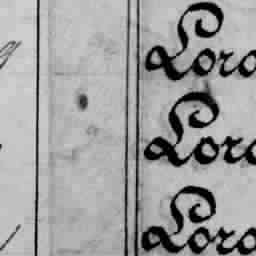 Lord
Lord
Lord